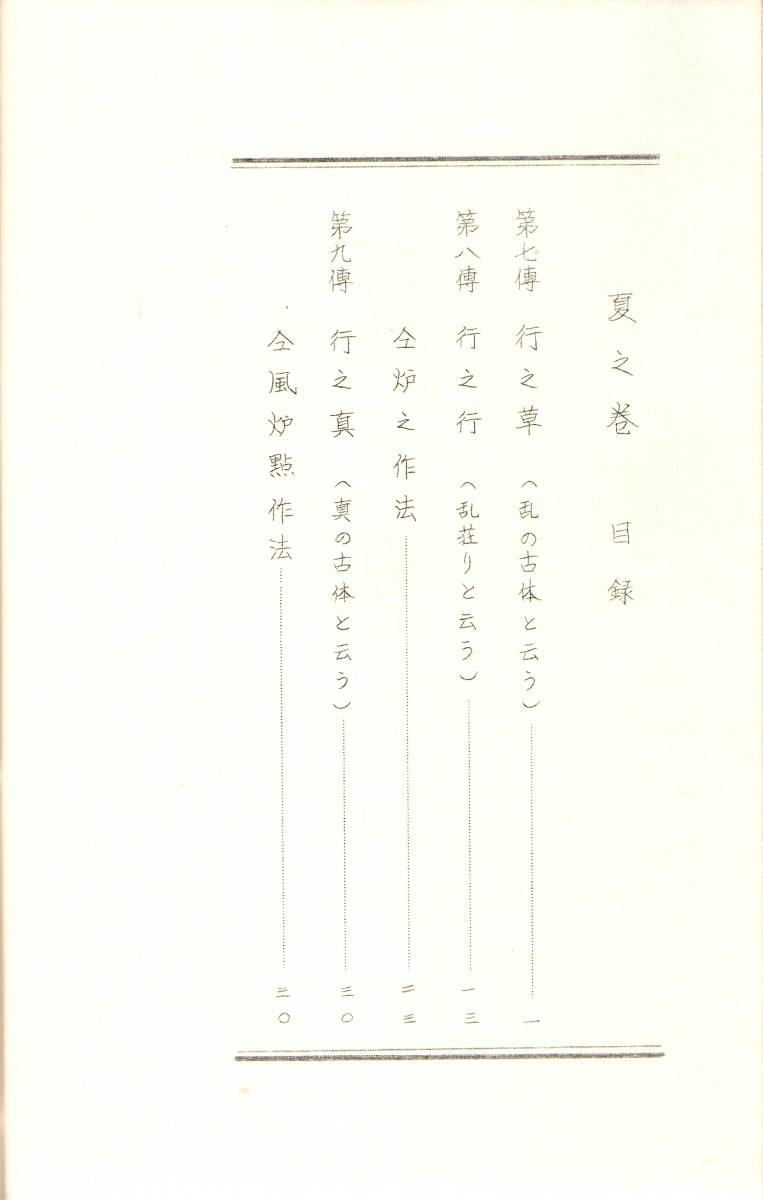 夏之巻　目録
第七傳　行之草（乱の古体と云う）…………一
第八傳　行之行（乱荘りと云う）…………一三
仝炉之作法…………二三
第九傳　行之真（真の古体と云う）…………三〇
仝風炉點作法…………三〇